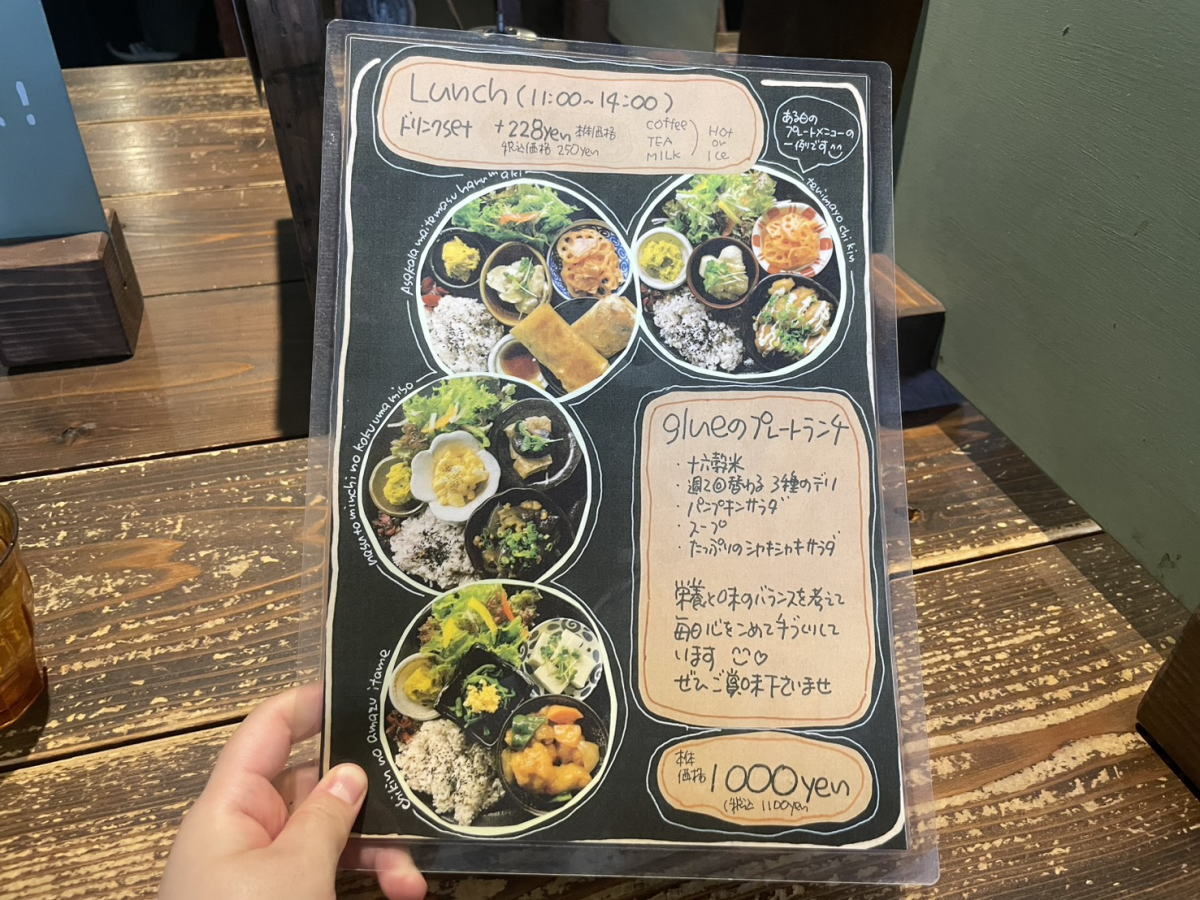 Lunch (11:00~14:00)
ドリンクset +228yen 本体価格
税込価格 250yen
coffee
TEA
MILK
Hot
or
Ice
ある日の
プレートメニューの
一例です
teri mayo chikin
nasu to minchi no koku uma miso
chikin no amazu itame
glueのプレートランチ
・十六穀米
・週2回替わる 3種のデリ
・パンプキンサラダ
・スープ
・たっぷりのシャキシャキサラダ
栄養と味のバランスを考えて
毎日心をこめて手づくりして
います
ぜひご賞味下さいませ
本体
価格 1000yen
(税込 1100yen